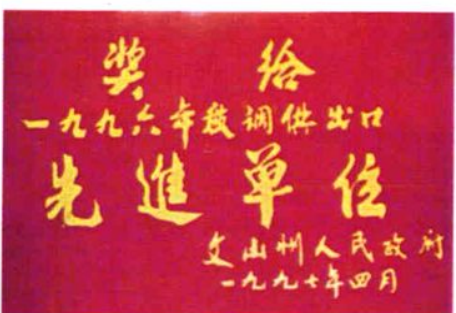 奖给
一九九六年度调供出口
先進单位
文山州人民政府
一九九七年四月